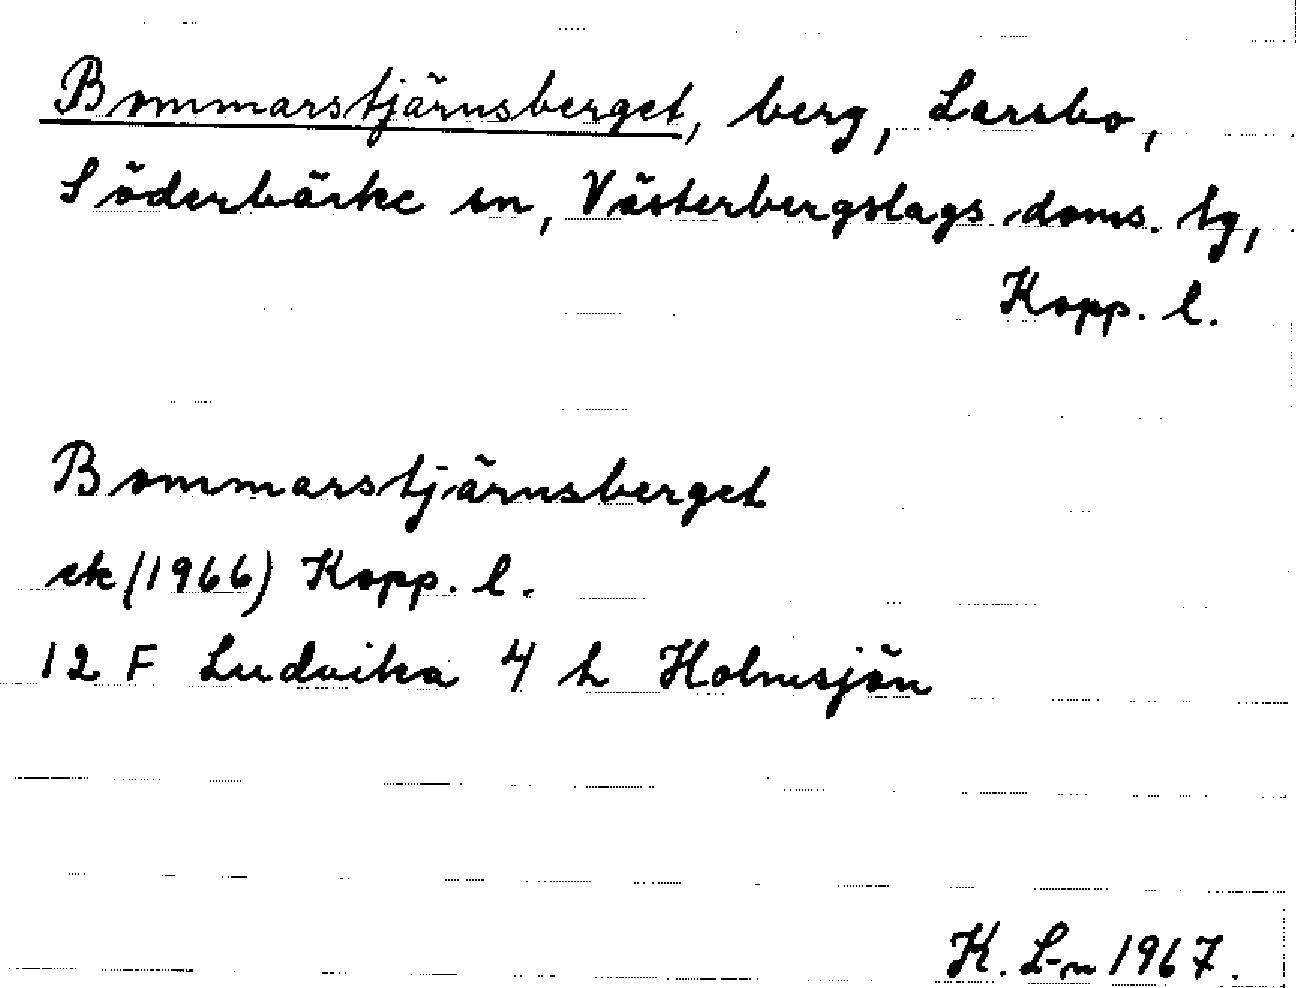 Bommarstjärnsberget, berg, Larsbo,
Söderbärke sn, Västerbergslags doms. tg,
Kopp. l.
Bommarstjärnsberget
ek (1966) Kopp. l.
12 F Ludvika 4 h Holmsjön
K. L-n 1967.